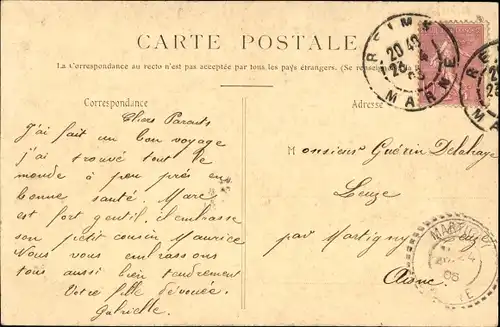 CARTE POSTALE
La Correspondance au recto n'est pas acceptée par tous les pays étrangers. (Se renseigner
Correspondance
Adresse
Chers Parents
J'ai fait un bon voyage
j'ai trouvé tout le
monde à peu près en
bonne santé. Marc
est fort gentil. il embrasse
son petit cousin Maurice
Nous vous embrassons
tous aussi bien tendrement
Votre fille dévouée.
Gabrielle.
Monsieur Guérin Delahaye
Leuze
par Martigny
Aisne
REIMS
20 40
26
MARNE
RE
M
MARTIGNY
05